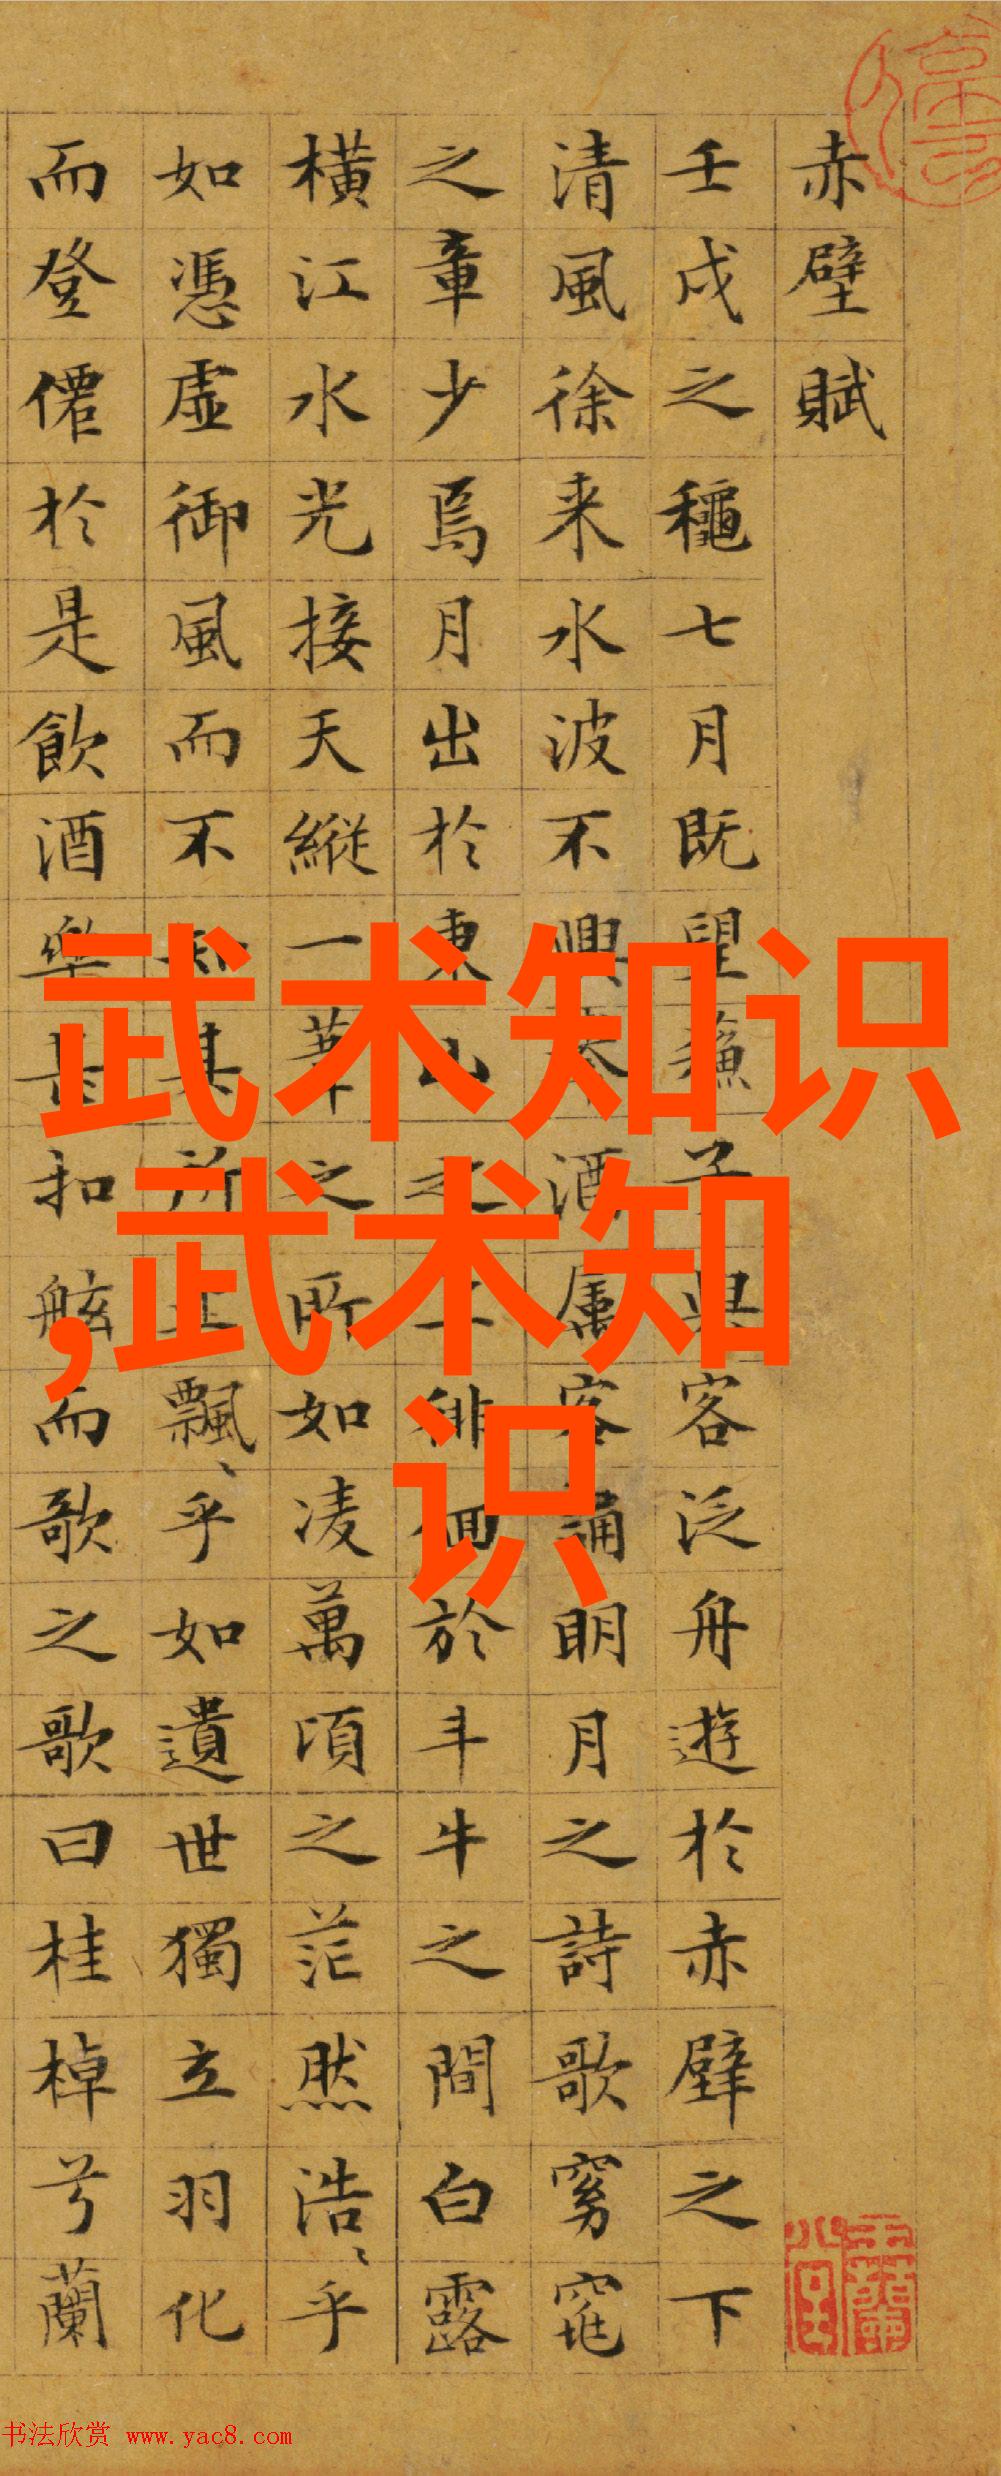 赤壁賦
壬戌之穐七月既望蘓子與客泛舟遊於赤壁之下
清風徐来水波不興舉酒属客誦明月之詩歌窈窕
之章少焉月出於東山之上徘徊於斗牛之間白露
橫江水光接天縱一葦之所如凌萬頃之茫然浩〻乎
如憑虛御風而不知其所止飄〻乎如遺世獨立羽化
而登僊於是飲酒樂甚扣舷而歌之歌曰桂棹兮蘭
武术知识
,武术知
识
书法欣赏 www.yac8.com